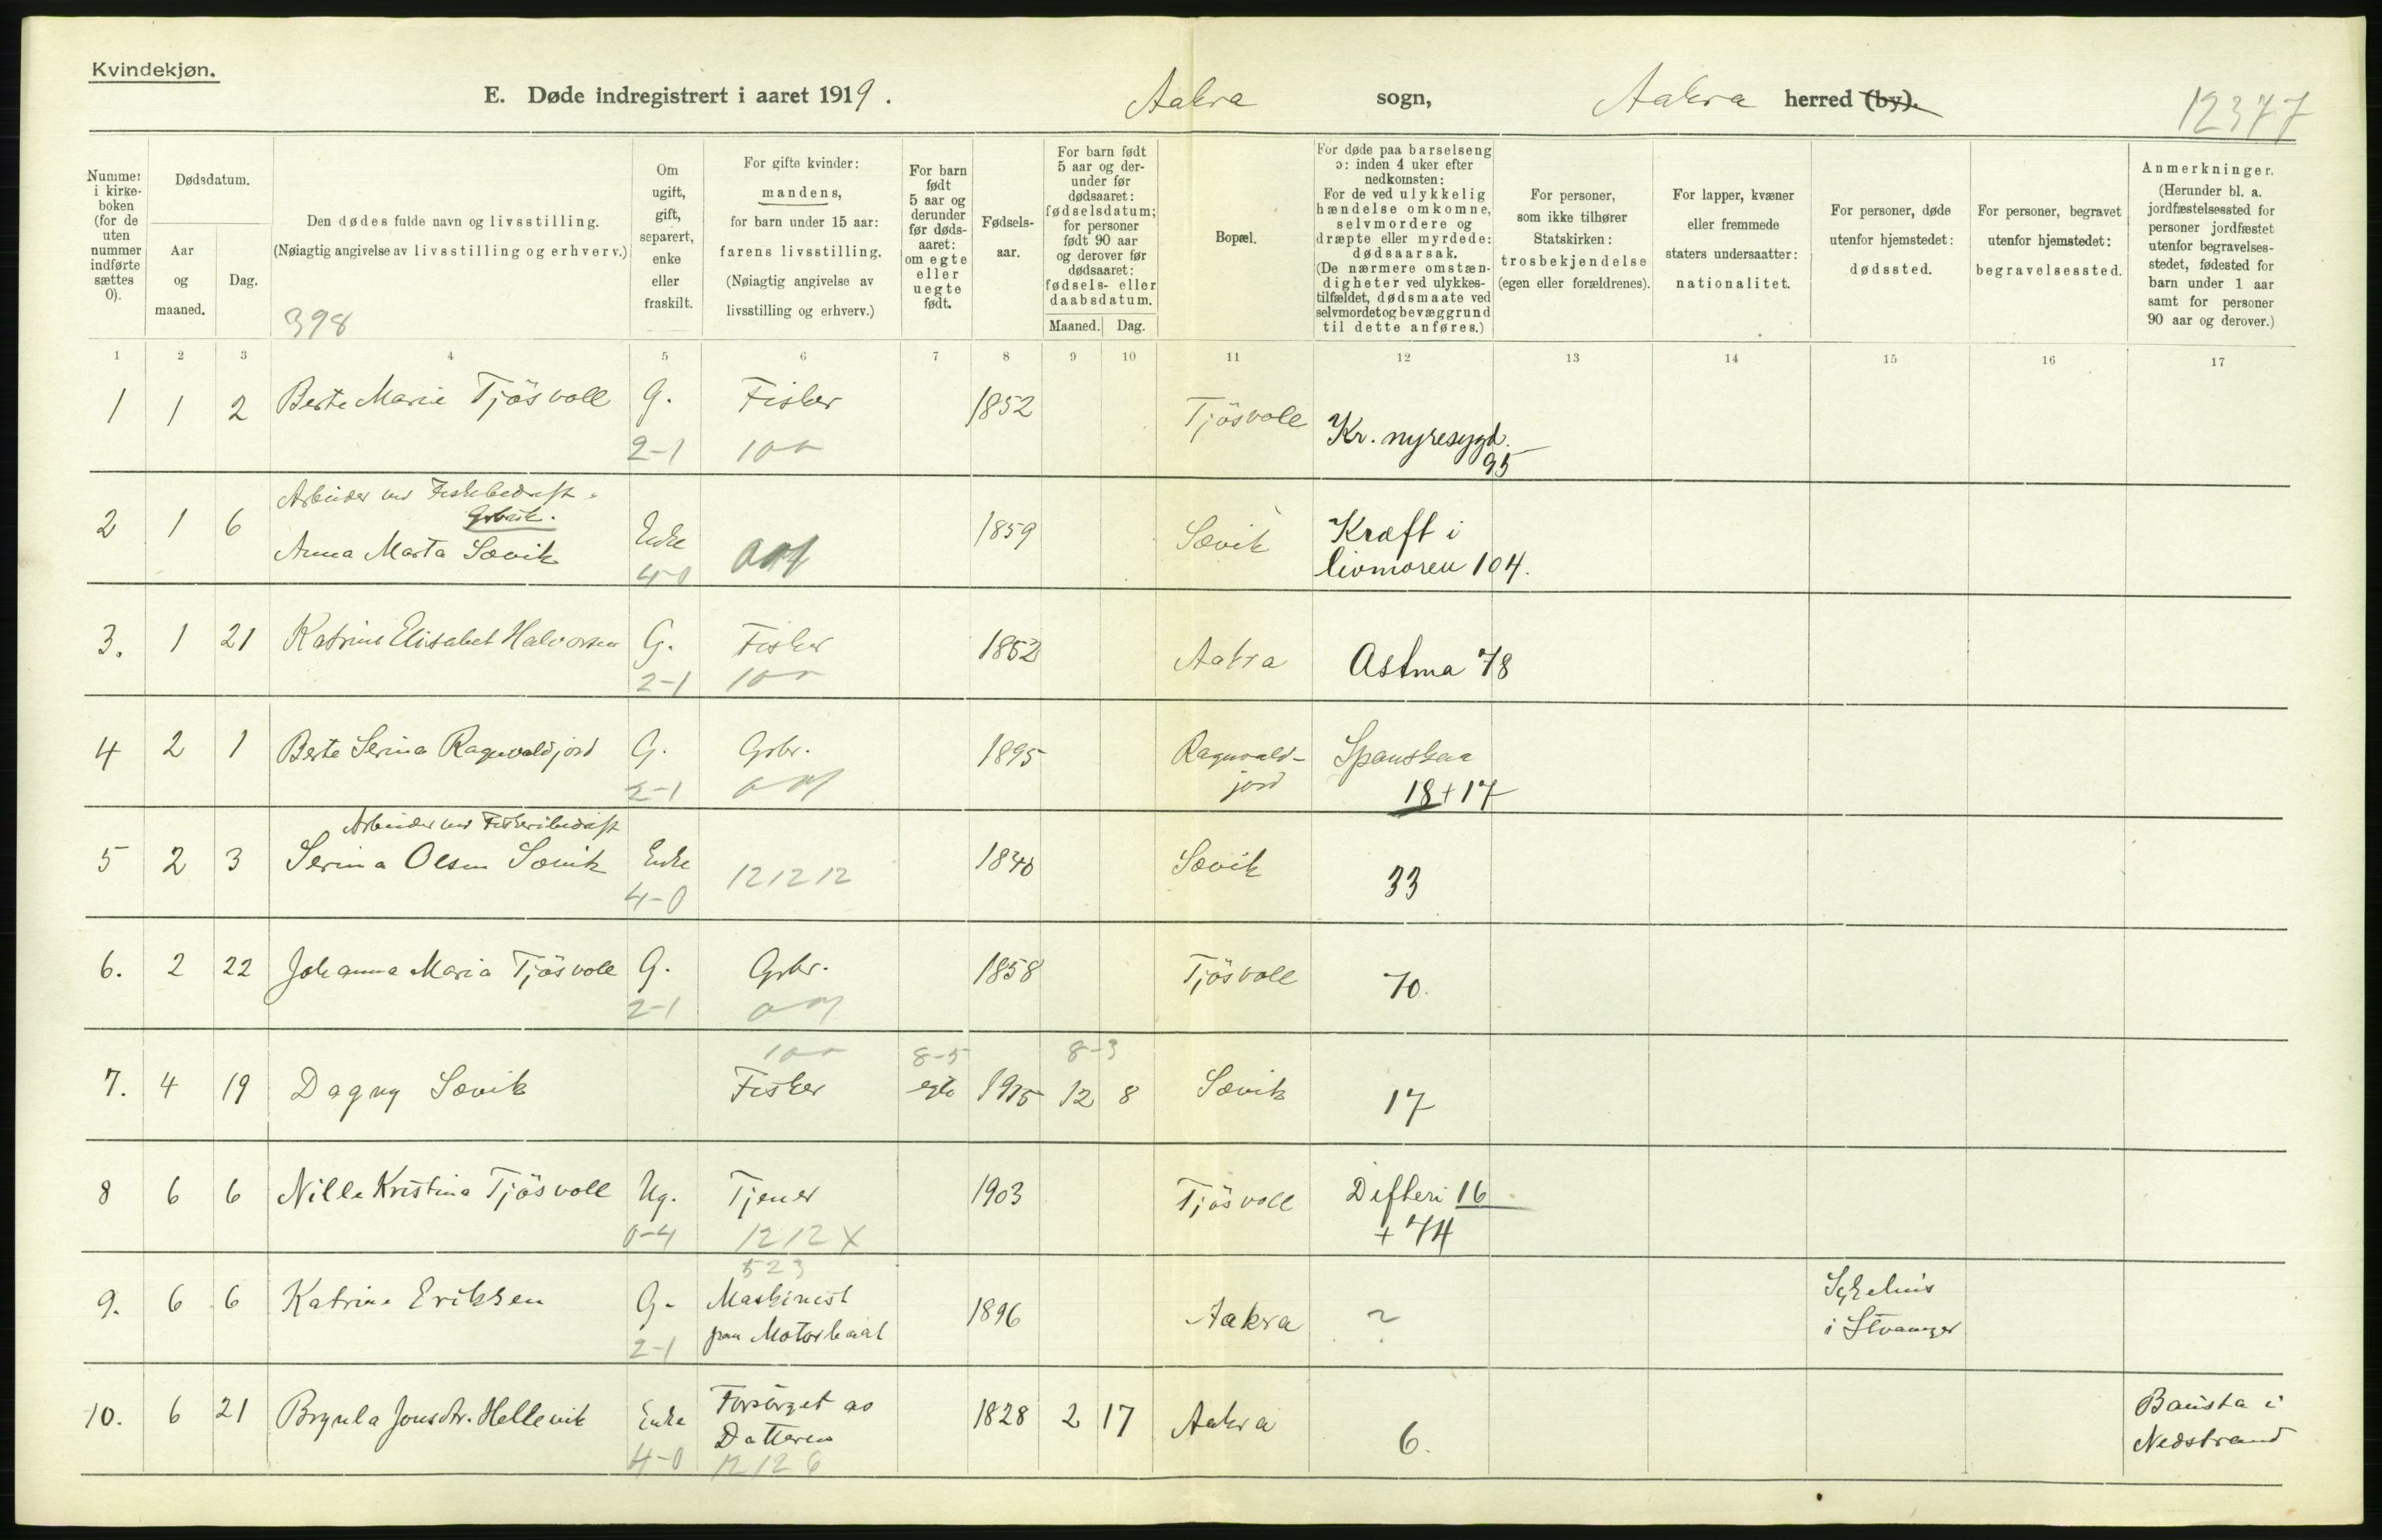 Kvindekjøn.
E. Døde indregistrert i aaret 1919. Aakra sogn, Aakra herred (by).
12377
Nummer i kirke-boken (for de uten nummer indførte sættes 0).
Dødsdatum.
Aar og maaned.
Dag.
Den dødes fulde navn og livsstilling.
(Nøiagtig angivelse av livsstilling og erhverv.)
398
Om ugift, gift, separert, enke eller fraskilt.
For gifte kvinder: mandens, for barn under 15 aar: farens livsstilling.
(Nøiagtig angivelse av livsstilling og erhverv.)
For barn født 5 aar og derunder før døds-aaret: om egte eller uegte født.
Fødsels-aar.
For barn født 5 aar og der-under før dødsaaret: fødselsdatum; for personer født 90 aar og derover før dødsaaret: fødsels- eller daabsdatum.
Maaned. Dag.
Bopæl.
For døde paa barselseng ɔ: inden 4 uker efter nedkomsten:
For de ved ulykkelig hændelse omkomne, selvmordere og dræpte eller myrdede: dødsaarsak.
(De nærmere omstæn-digheter ved ulykkes-tilfældet, dødsmaate ved selvmordet og bevæggrund til dette anføres.)
For personer, som ikke tilhører Statskirken: trosbekjendelse (egen eller forældrenes).
For lapper, kvæner eller fremmede staters undersaatter: nationalitet.
For personer, døde utenfor hjemstedet: dødssted.
For personer, begravet utenfor hjemstedet: begravelsessted.
Anmerkninger.
(Herunder bl. a. jordfæstelsessted for personer jordfæstet utenfor begravelses-stedet, fødested for barn under 1 aar samt for personer 90 aar og derover.)
1 2 3 4 5 6 7 8 9 10 11 12 13 14 15 16 17
1 1 2 Berte Marie Tjösvoll G. Fisker 1852 Tjösvoll Kr. nyresygd.
2-1 95
Arbeider ved Fiskebedrift.
2 1 6 Anna Marta Sævik Enke 1859 Sævik Kræft i
4-0 livmoren 104.
3. 1 21 Katrine Elisabet Halvorsen G. Fisker 1852 Aakra Astma 78
2-1
4 2 1 Berte Serina Ragnvaldjord G. Grbr. 1895 Ragnvald-jord Spanskaa
2-1 18+17
Arbeider ved Fiskeribedrift
5 2 3 Serina Olsen Sævik Enke 121212 1840 Sævik 33
4-0
6. 2 22 Johanna Maria Tjösvoll G. Grbr. 1858 Tjösvoll 70.
2-1
8-5 8-3
7. 4 19 Dagny Sævik Fisker egte 1915 12 8 Sævik 17
8 6 6 Nille Kristina Tjösvoll Ug. Tjener 1903 Tjösvoll Difteri 16
0-4 1212X + 74
523
9. 6 6 Katrine Eriksen G. Maskinist 1896 Aakra ? Sykehus
2-1 paa Motorbaat i Stvanger
10. 6 21 Brynla Jonsdtr. Hellevik Enke Forsörget av 1828 2 17 Aakra 6. Bausta i
Datteren Nedstrand
4-0 12126